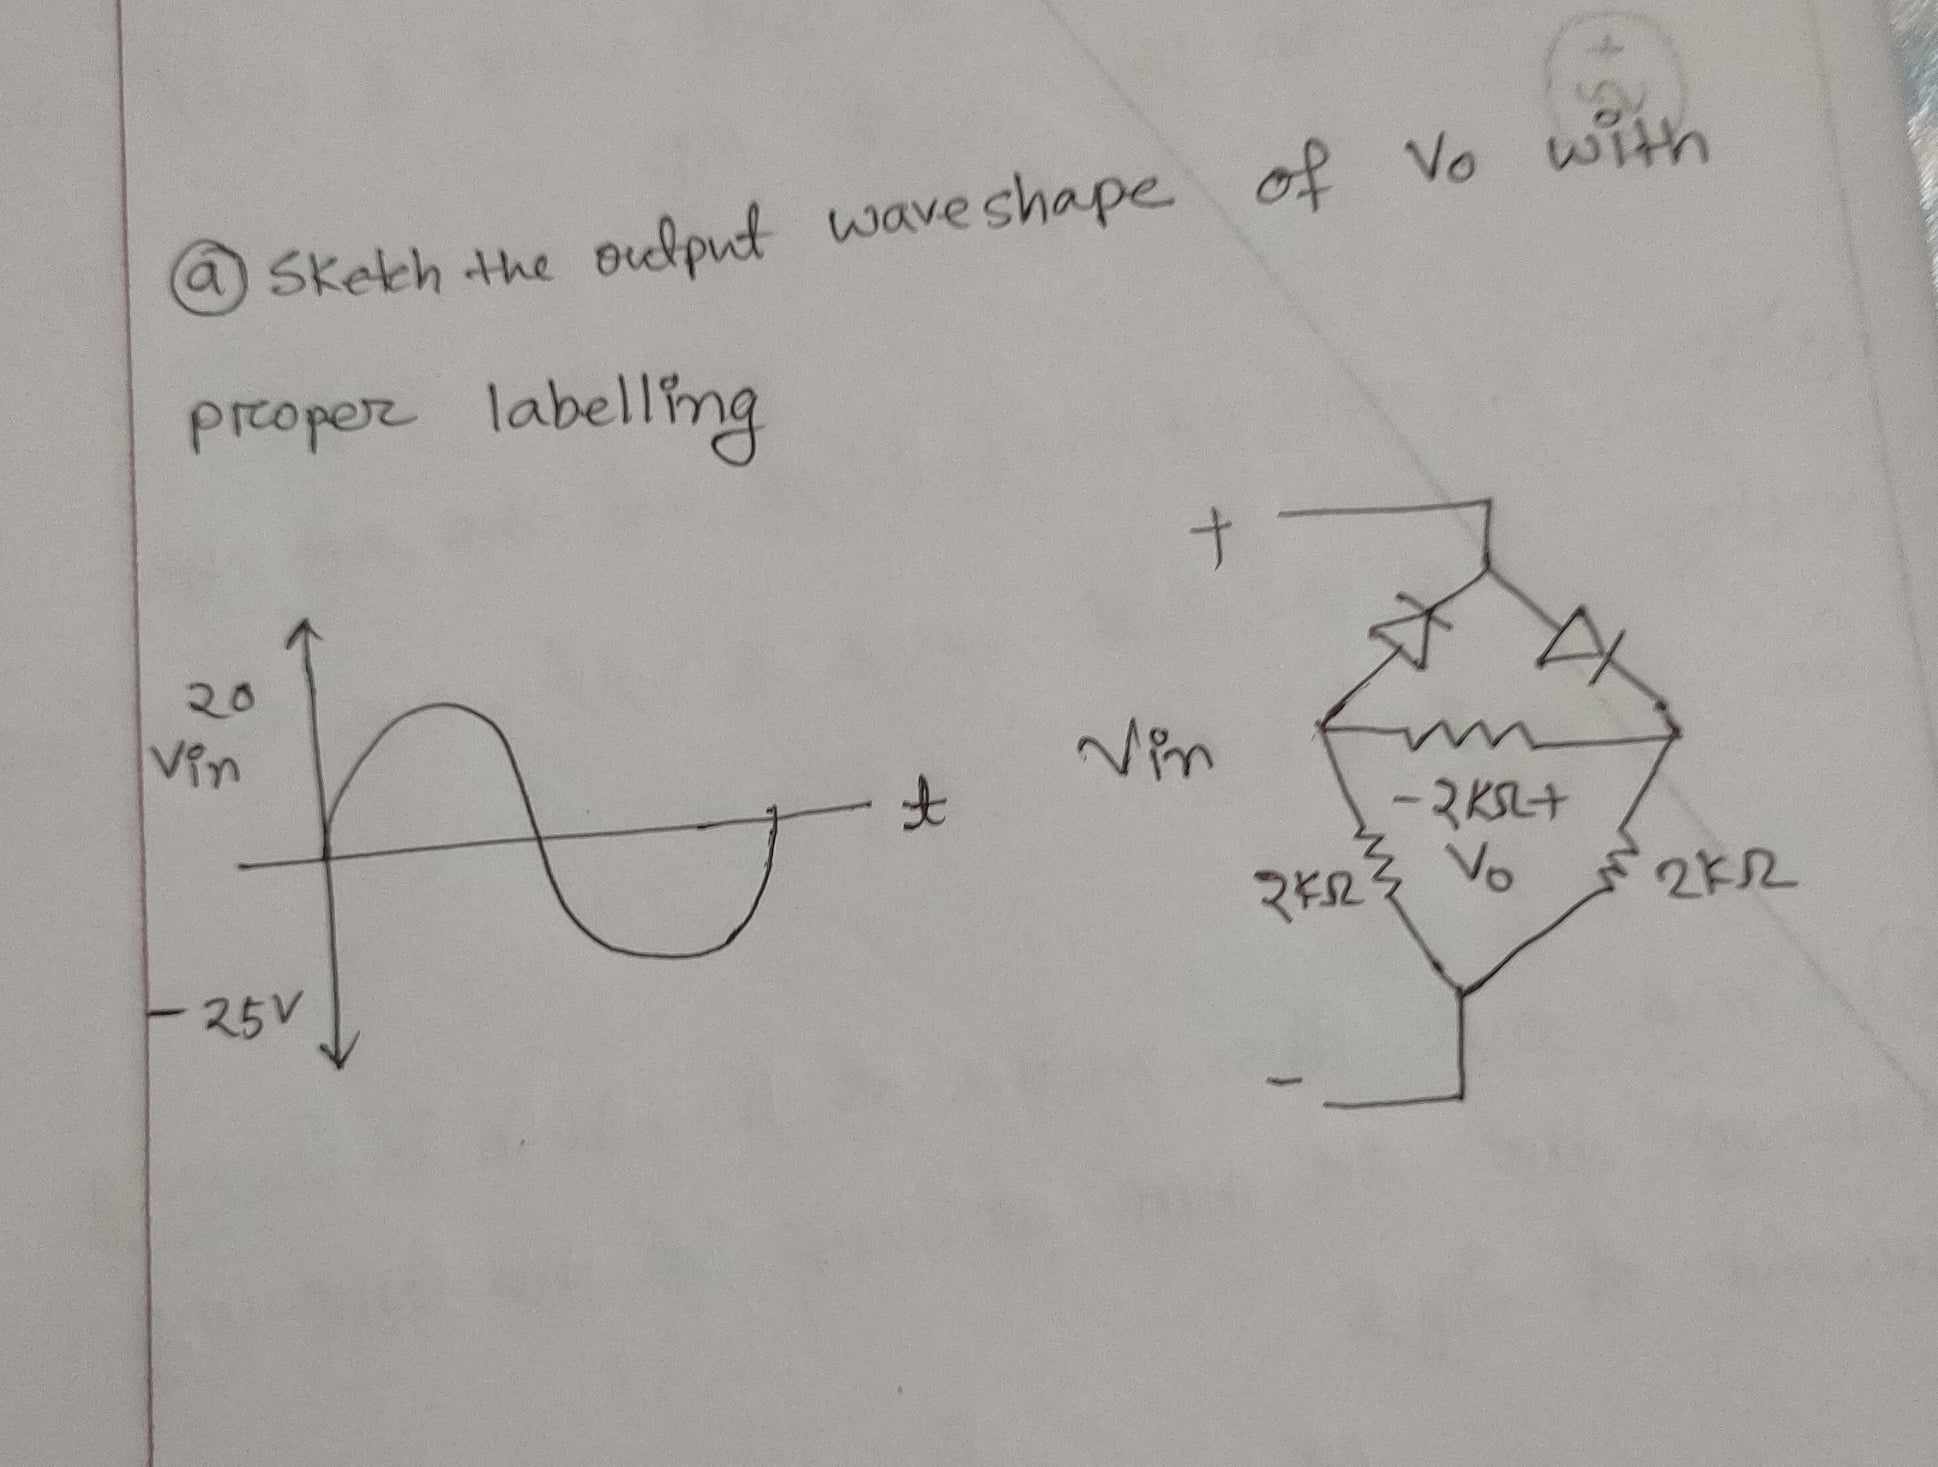 ⓐ Sketch the output waveshape of Vo with
proper labelling
+
20
Vin
t
Vin
- 2KΩ +
Vo
2KΩ
2KΩ
- 25V
-